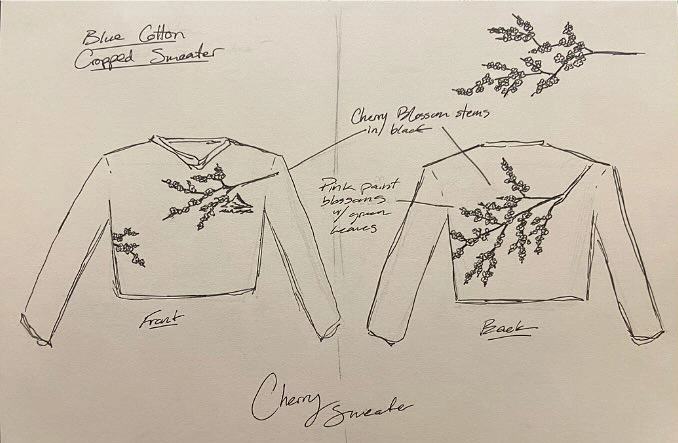 Blue Cotton
Cropped Sweater
Cherry Blossom stems
in/ black
Pink paint
blossoms
w/ green
leaves
Front
Back
Cherry
Sweater